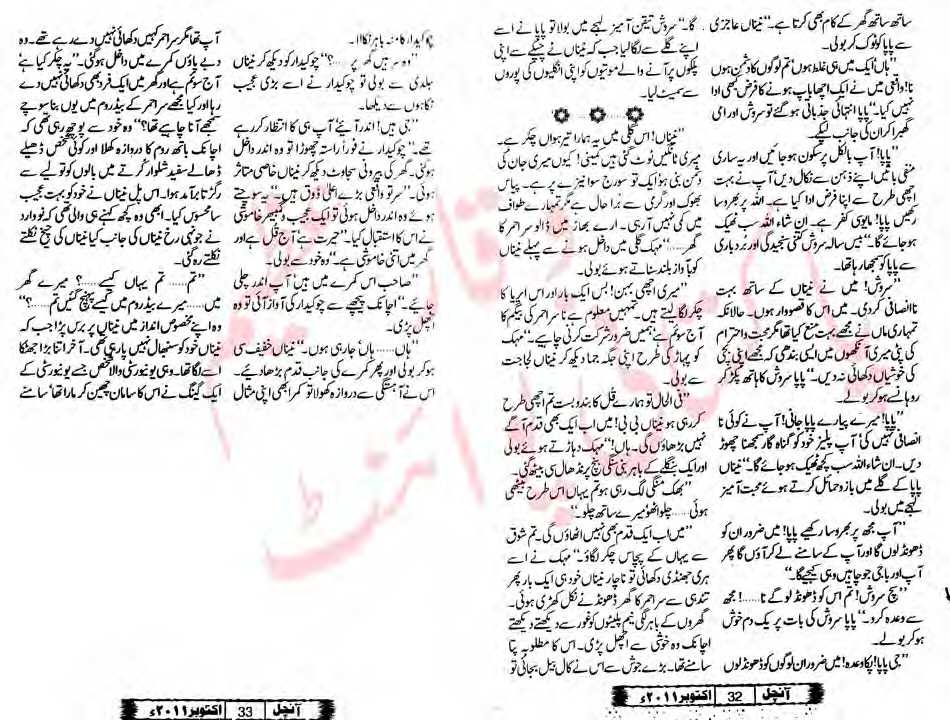 ساتھ ساتھ گھر کے کام بھی کرتا ہے۔“ نیناں عاجزی
سے پاپا کو ٹوک کر بولی۔
”ہاں ایک میں ہی غلط ہوں، تم لوگوں کا دشمن ہوں
نا! واقعی میں نے ایک اچھا باپ ہونے کا فرض بھی ادا
نہیں کیا۔“ پاپا انتہائی جذباتی ہو گئے تو سروش اور امی
گھبرا کر ان کی جانب لپکے۔
”پاپا! آپ بالکل پرسکون ہو جائیں اور یہ ساری
منفی باتیں اپنے ذہن سے نکال دیں آپ نے بہت
اچھی طرح سے اپنا فرض ادا کیا ہے۔ اللہ پر بھروسا
رکھیں پاپا! مایوسی کفر ہے۔ ان شاء اللہ سب ٹھیک
ہو جائے گا۔“ بیس سالہ سروش کتنی سنجیدگی اور بردباری
سے پاپا کو سمجھا رہا تھا۔
”سروش! میں نے نیناں کے ساتھ بہت
ناانصافی کر دی۔ میں اس کا قصوروار ہوں۔ حالانکہ
تمہاری ماں نے مجھے بہت منع کیا تھا مگر محبت و احترام
کی پٹی میری آنکھوں میں ایسی بندھی کہ مجھے اپنی بچی
کی خوشیاں دکھائی نہ دیں۔“ پاپا سروش کا ہاتھ پکڑ کر
روہانسے ہو کر بولے۔
”پاپا! میرے پیارے پاپا جانی! آپ نے کوئی نا
انصافی نہیں کی، آپ پلیز خود کو گناہ گار سمجھنا چھوڑ
دیں۔ ان شاء اللہ سب کچھ ٹھیک ہو جائے گا۔“ نیناں
پاپا کے گلے میں بازو حمائل کرتے ہوئے محبت آمیز
لہجے میں بولی۔
”آپ مجھ پر بھروسا رکھیے پاپا! میں ضرور ان کو
ڈھونڈ لوں گا اور آپ کے سامنے لے کر آؤں گا پھر
آپ اور باجی جو چاہیں وہی کیجیے گا۔“
”سچ سروش! تم اس کو ڈھونڈ لو گے نا......! مجھ
سے وعدہ کرو۔“ پاپا سروش کی بات پر یک دم خوش
ہو کر بولے۔
”جی پاپا! پکا وعدہ! میں ضرور ان لوگوں کو ڈھونڈ لوں
گا۔“ سروش یقین آمیز لہجے میں بولا تو پاپا نے اسے
اپنے گلے سے لگا لیا جب کہ نیناں نے چپکے سے اپنی
پلکوں پر آنے والے موتیوں کو اپنی انگلیوں کی پوروں
سے سمیٹ لیا۔
”نیناں! اس گلی میں یہ ہمارا تیرہواں چکر ہے۔
میری ٹانگیں ٹوٹ گئی ہیں کمینی! کیوں میری جان کی
دشمن بنی ہو ایک تو سورج سوا نیزے پر ہے۔ پیاس
بھوک اور گرمی سے برا حال ہے مگر تمہارے طواف
میں کمی نہیں آ رہی۔ ارے بھاڑ میں ڈالو سر احمر کا
گھر......“ مہک گلی میں داخل ہونے سے پہلے نیناں
کو بآواز بلند سناتے ہوئے بولی۔
”میری اچھی بہن! بس ایک بار اور اس ایریا کا
چکر لگا لیتے ہیں۔ تمہیں معلوم ہے نا سر احمر کی بیگم کا
آج سوئم ہے، ہمیں ضرور شرکت کرنی چاہیے۔“ مہک
کو پہاڑ کی طرح اپنی جگہ جما دیکھ کر نیناں لجاجت
سے بولی۔
”فی الحال تو ہمارے قل کا بندوبست تم اچھی طرح
کر رہی ہو نیناں بی بی! میں اب ایک بھی قدم آگے
نہیں بڑھاؤں گی۔ ہاں!“ مہک دہاڑتے ہوئے بولی
اور ایک بنگلے کے باہر بنی سنگی بنچ پر نڈھال سی بیٹھ گئی۔
”بھک منگی لگ رہی ہو تم یہاں اس طرح بیٹھی
ہوئی...... چلو اٹھو میرے ساتھ چلو۔“
”میں اب ایک قدم بھی نہیں اٹھاؤں گی۔ تم شوق
سے یہاں کے پچاس چکر لگاؤ۔“ مہک نے اسے
ہری جھنڈی دکھائی تو ناچار نیناں خود ہی ایک بار پھر
تندہی سے سر احمر کا گھر ڈھونڈنے نکل کھڑی ہوئی۔
گھروں کے باہر لگی نیم پلیٹوں کو غور سے دیکھتے دیکھتے
اچانک وہ خوشی سے اچھل پڑی۔ اس کا مطلوبہ پتا
سامنے تھا۔ بڑے جوش سے اس نے کال بیل بجائی تو
آنچل 32 اکتوبر ۲۰۱۱ء
چوکیدار کا منہ باہر نکلا۔
”وہ سر ہیں گھر پر......؟“ چوکیدار کو دیکھ کر نیناں
جلدی سے بولی تو چوکیدار نے اسے بڑی عجیب
نگاہوں سے دیکھا۔
”جی ہیں! اندر آئیے، آپ ہی کا انتظار کر رہے
تھے۔“ چوکیدار نے فوراً راستہ چھوڑا تو وہ اندر داخل
ہوئی۔ گھر کی بیرونی سجاوٹ دیکھ کر نیناں خاصی متاثر
ہوئی۔ ”سر تو واقعی بڑے اعلیٰ ذوق ہیں۔“ یہ سوچتے
ہوئے وہ اندر داخل ہوئی تو ایک عجیب و گمبھیر خاموشی
نے اس کا استقبال کیا۔ ”حیرت ہے، آج قل ہے اور
گھر میں اتنی خاموشی ہے۔“ وہ خود سے بولی۔
”صاحب اس کمرے میں ہیں، آپ اندر چلی
جائیے۔“ اچانک پیچھے سے چوکیدار کی آواز آئی تو وہ
اچھل پڑی۔
”ہاں...... ہاں جا رہی ہوں۔“ نیناں خفیف سی
ہو کر بولی اور پھر کمرے کی جانب قدم بڑھا دیئے۔
اس نے آہستگی سے دروازہ کھولا تو کمرا بھی اپنی مثال
آپ تھا مگر سر احمر کہیں دکھائی نہیں دے رہے تھے۔ وہ
دبے پاؤں کمرے میں داخل ہو گئی۔ ”یہ چکر کیا ہے
آج سوئم ہے اور گھر میں ایک فرد بھی دکھائی نہیں دے
رہا اور کیا مجھے سر احمر کے بیڈروم میں یوں بنا سوچے
سمجھے آنا چاہیے تھا؟“ وہ خود سے پوچھ رہی تھی کہ
اچانک باتھ روم کا دروازہ کھلا اور کوئی شخص ڈھیلے
ڈھالے سفید شلوار کرتے میں بالوں کو تولیے سے
رگڑتا برآمد ہوا۔ اس پل نیناں نے خود کو بہت عجیب
سا محسوس کیا۔ ابھی وہ کچھ کہنے ہی والی تھی کہ نووارد
نے جونہی رخ نیناں کی جانب کیا نیناں کی چیخ نکلتے
نکلتے رہ گئی۔
”تم...... تم یہاں کیسے......؟ میرے گھر
میں...... میرے بیڈروم میں کیسے پہنچ گئیں تم......؟“
وہ اپنے مخصوص انداز میں نیناں پر برس پڑا جب کہ
نیناں خود کو سنبھال نہیں پا رہی تھی۔ آخر اتنا بڑا جھٹکا
اسے لگا تھا۔ وہی یونیورسٹی والا شخص جسے یونیورسٹی کے
ایک گینگ نے اس کا سامان چھین کر مارا تھا، سامنے
آنچل 33 اکتوبر ۲۰۱۱ء